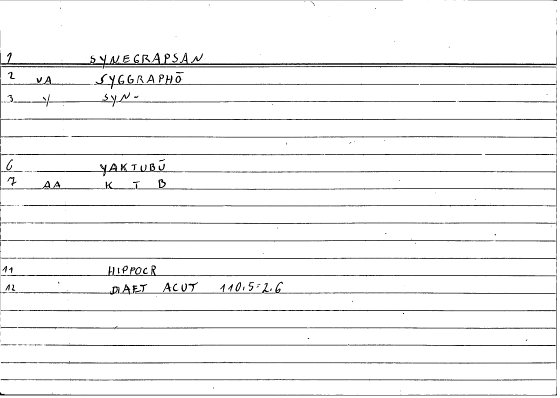 1 SYNEGRAPSAN
2 VA SYGGRAPHŌ
3 Y SYN-
6 YAKTUBŪ
7 AA K T B
11 HIPPOCR
12 DIAET ACUT 110.5=2.6